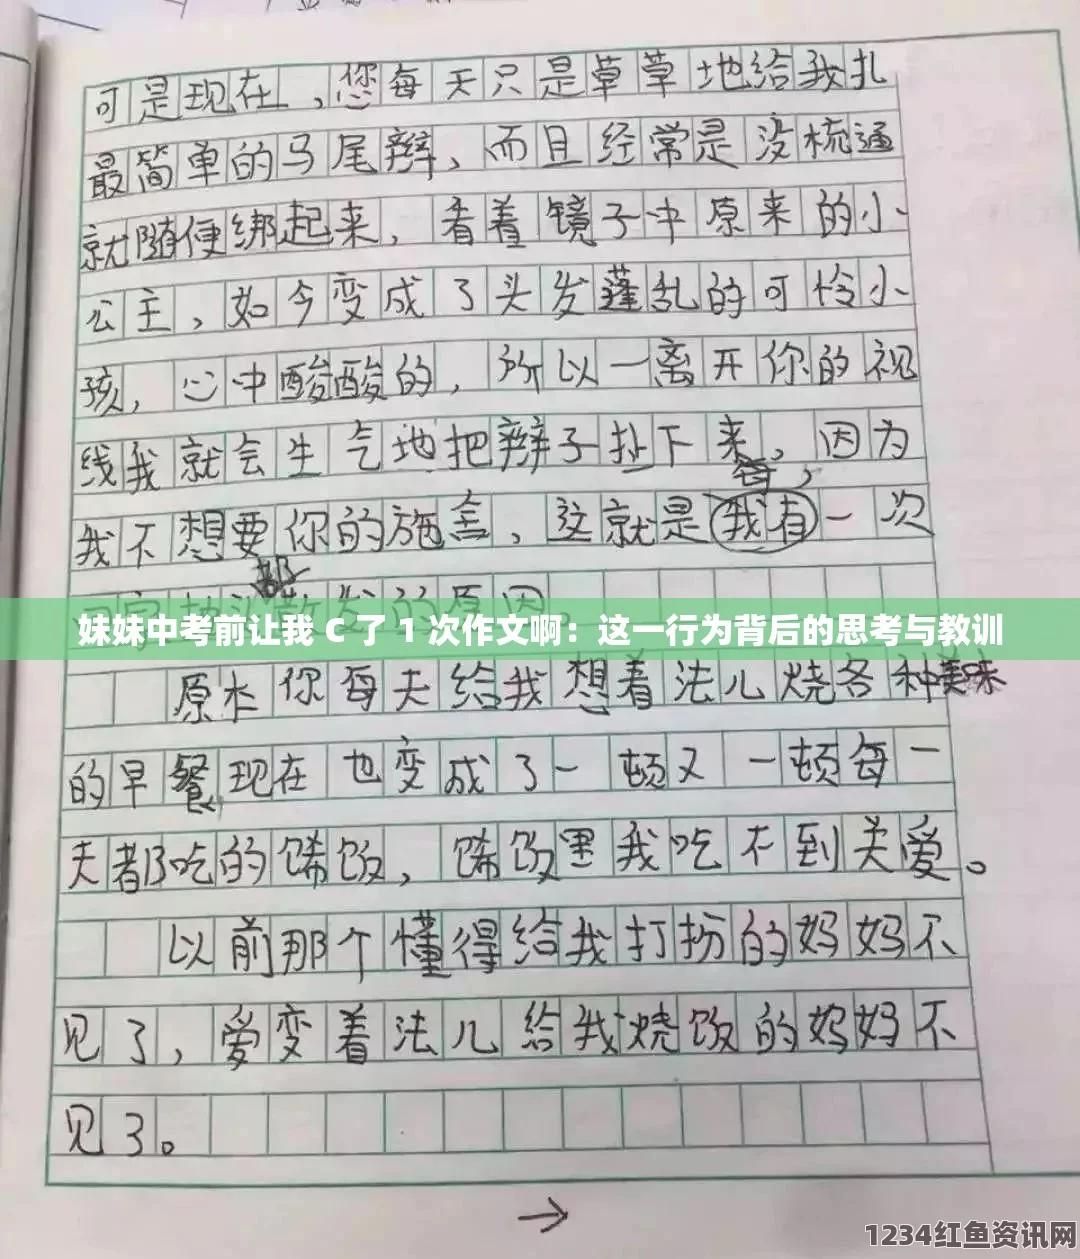 可是现在,您每天只是草草地给我扎
最简单的马尾辫,而且经常是没梳通
就随便绑起来,看着镜子中原来的小
公主,如今变成了头发蓬乱的可怜小
孩,心中酸酸的,所以一离开你的视
线我就会生气地把辫子扯下来,因为
每,
我不想要你的施舍,这就是我有一次
都
散发的原因。
妹妹中考前让我 C 了 1 次作文啊：这一行为背后的思考与教训
原本你每天给我想着法儿烧各种美味
的早餐现在也变成了一顿又一顿每一
天都吃的馊饭,馊饭里我吃不到关爱。
以前那个懂得给我打扮的妈妈不
见了,爱变着法儿给我烧饭的妈妈不
见了。
→
1234红鱼资讯网